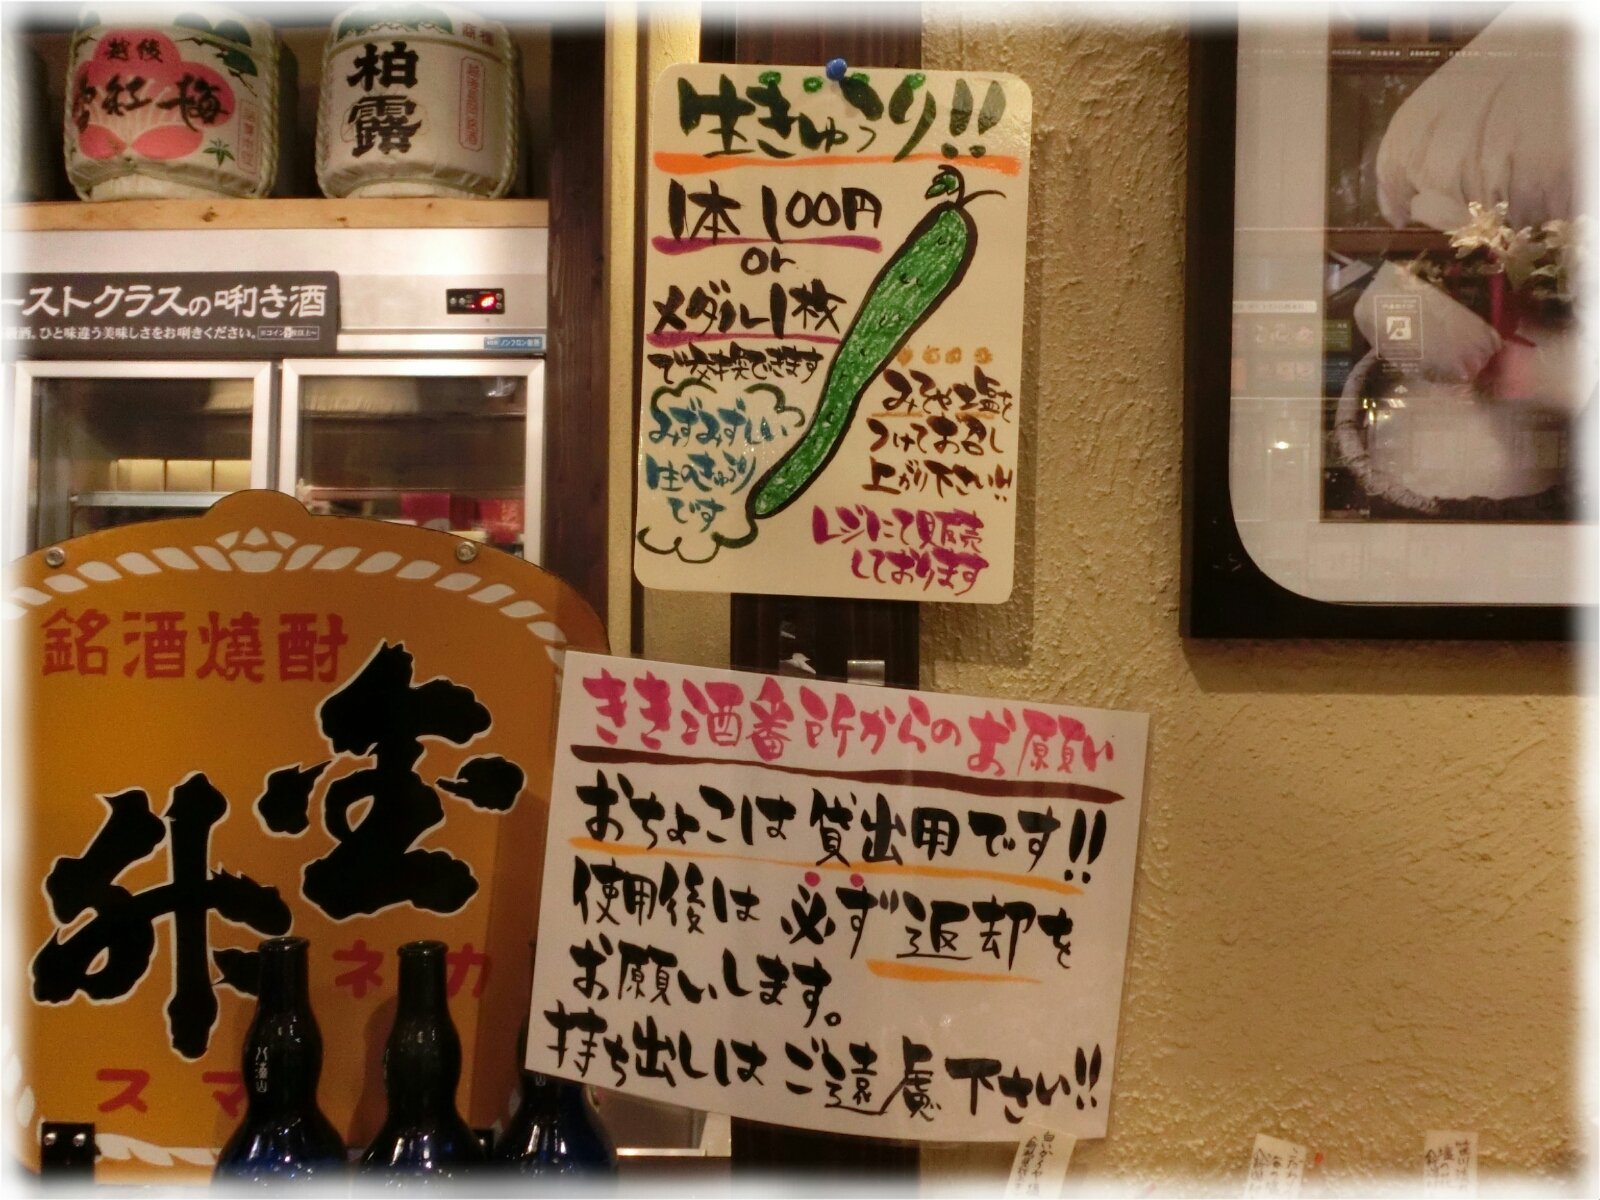 越後
紅梅
柏露
ーストクラスの唎き酒
酒。ひと味違う美味しさをお唎きください。
ノンフロン
生きゅうり!!
1本 100円
or
メダル1枚
で交換できます
みずみずしい
生のきゅうり
です
みそや塩を
つけてお召し
上がり下さい!!
レジにて販売
しております
銘酒焼酎
ネカ
スマ
きき酒番所からのお願い
おちょこは貸出用です!!
使用後は必ず返却を
お願いします。
持ち出しはご遠慮下さい!!